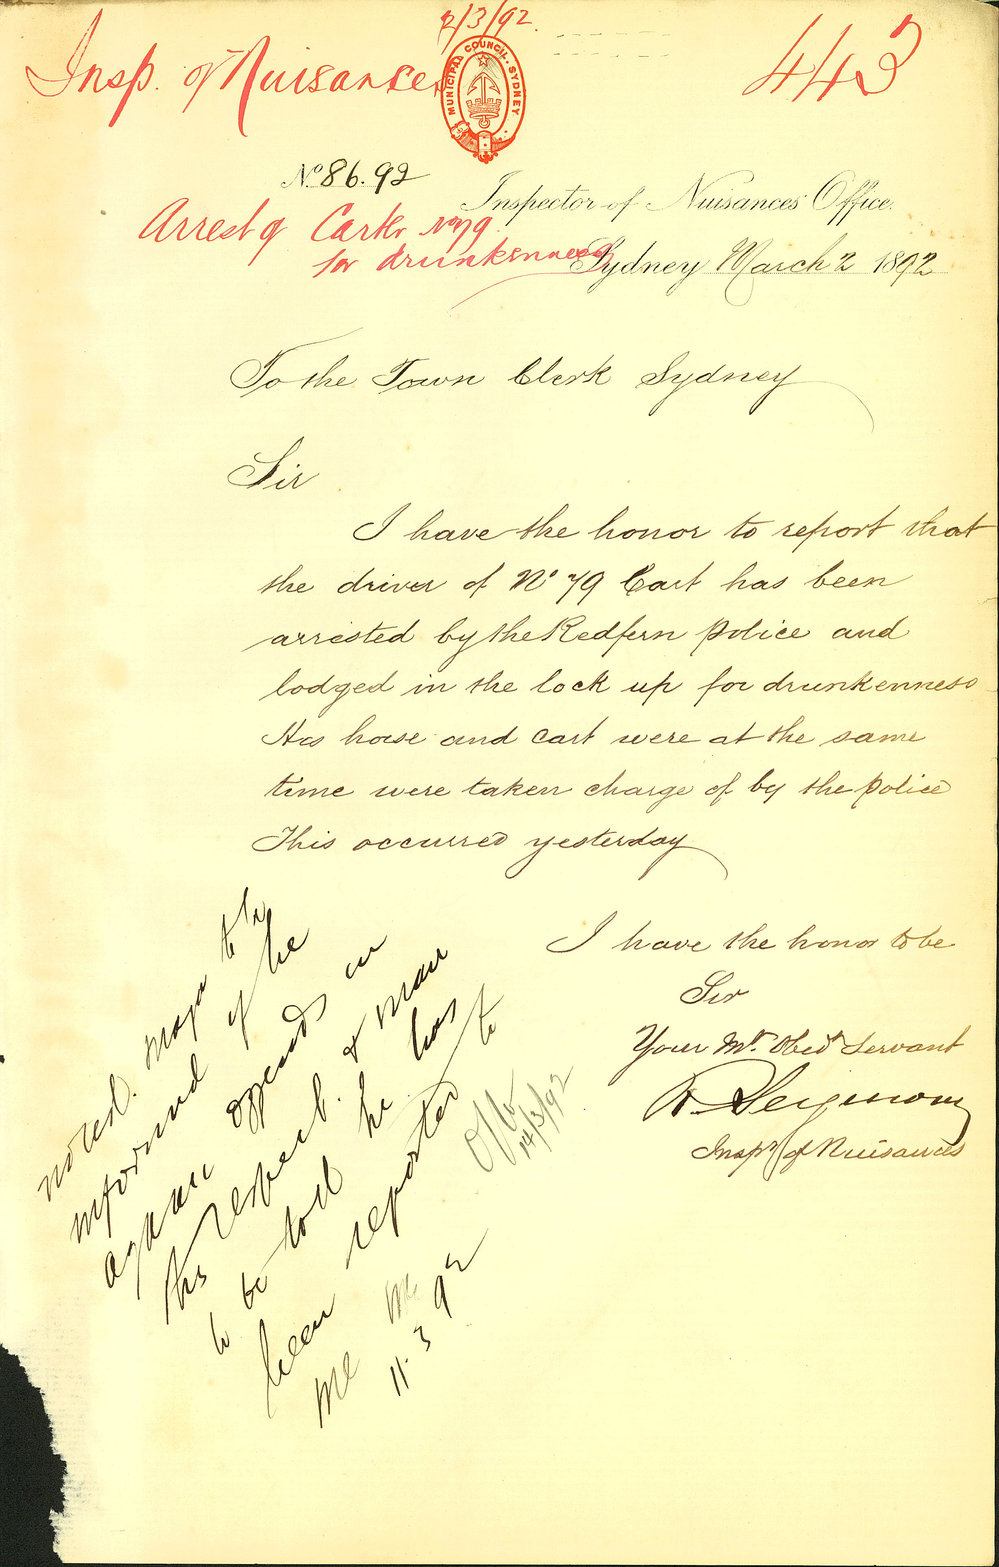 2/3/92.
Insp. of Nuisances
443
MUNICIPAL COUNCIL. SYDNEY
No 86.92
Inspector of Nuisances Office
Arrest of Carter No 79
for drunkenness
Sydney March 2 1892
To the Town Clerk Sydney
Sir
I have the honor to report that
the driver of No 79 Cart has been
arrested by the Redfern Police and
lodged in the lock up for drunkenness
His horse and cart were at the same
time were taken charge of by the Police
This occurred yesterday
I have the honor to be
Sir
Your Mt Obedt Servant
R. Seymour
Inspr of Nuisances
noted.
informed if he
again offends in
this respect. & man
to be told he has
been reported to
me
11.3.92
14/3/92